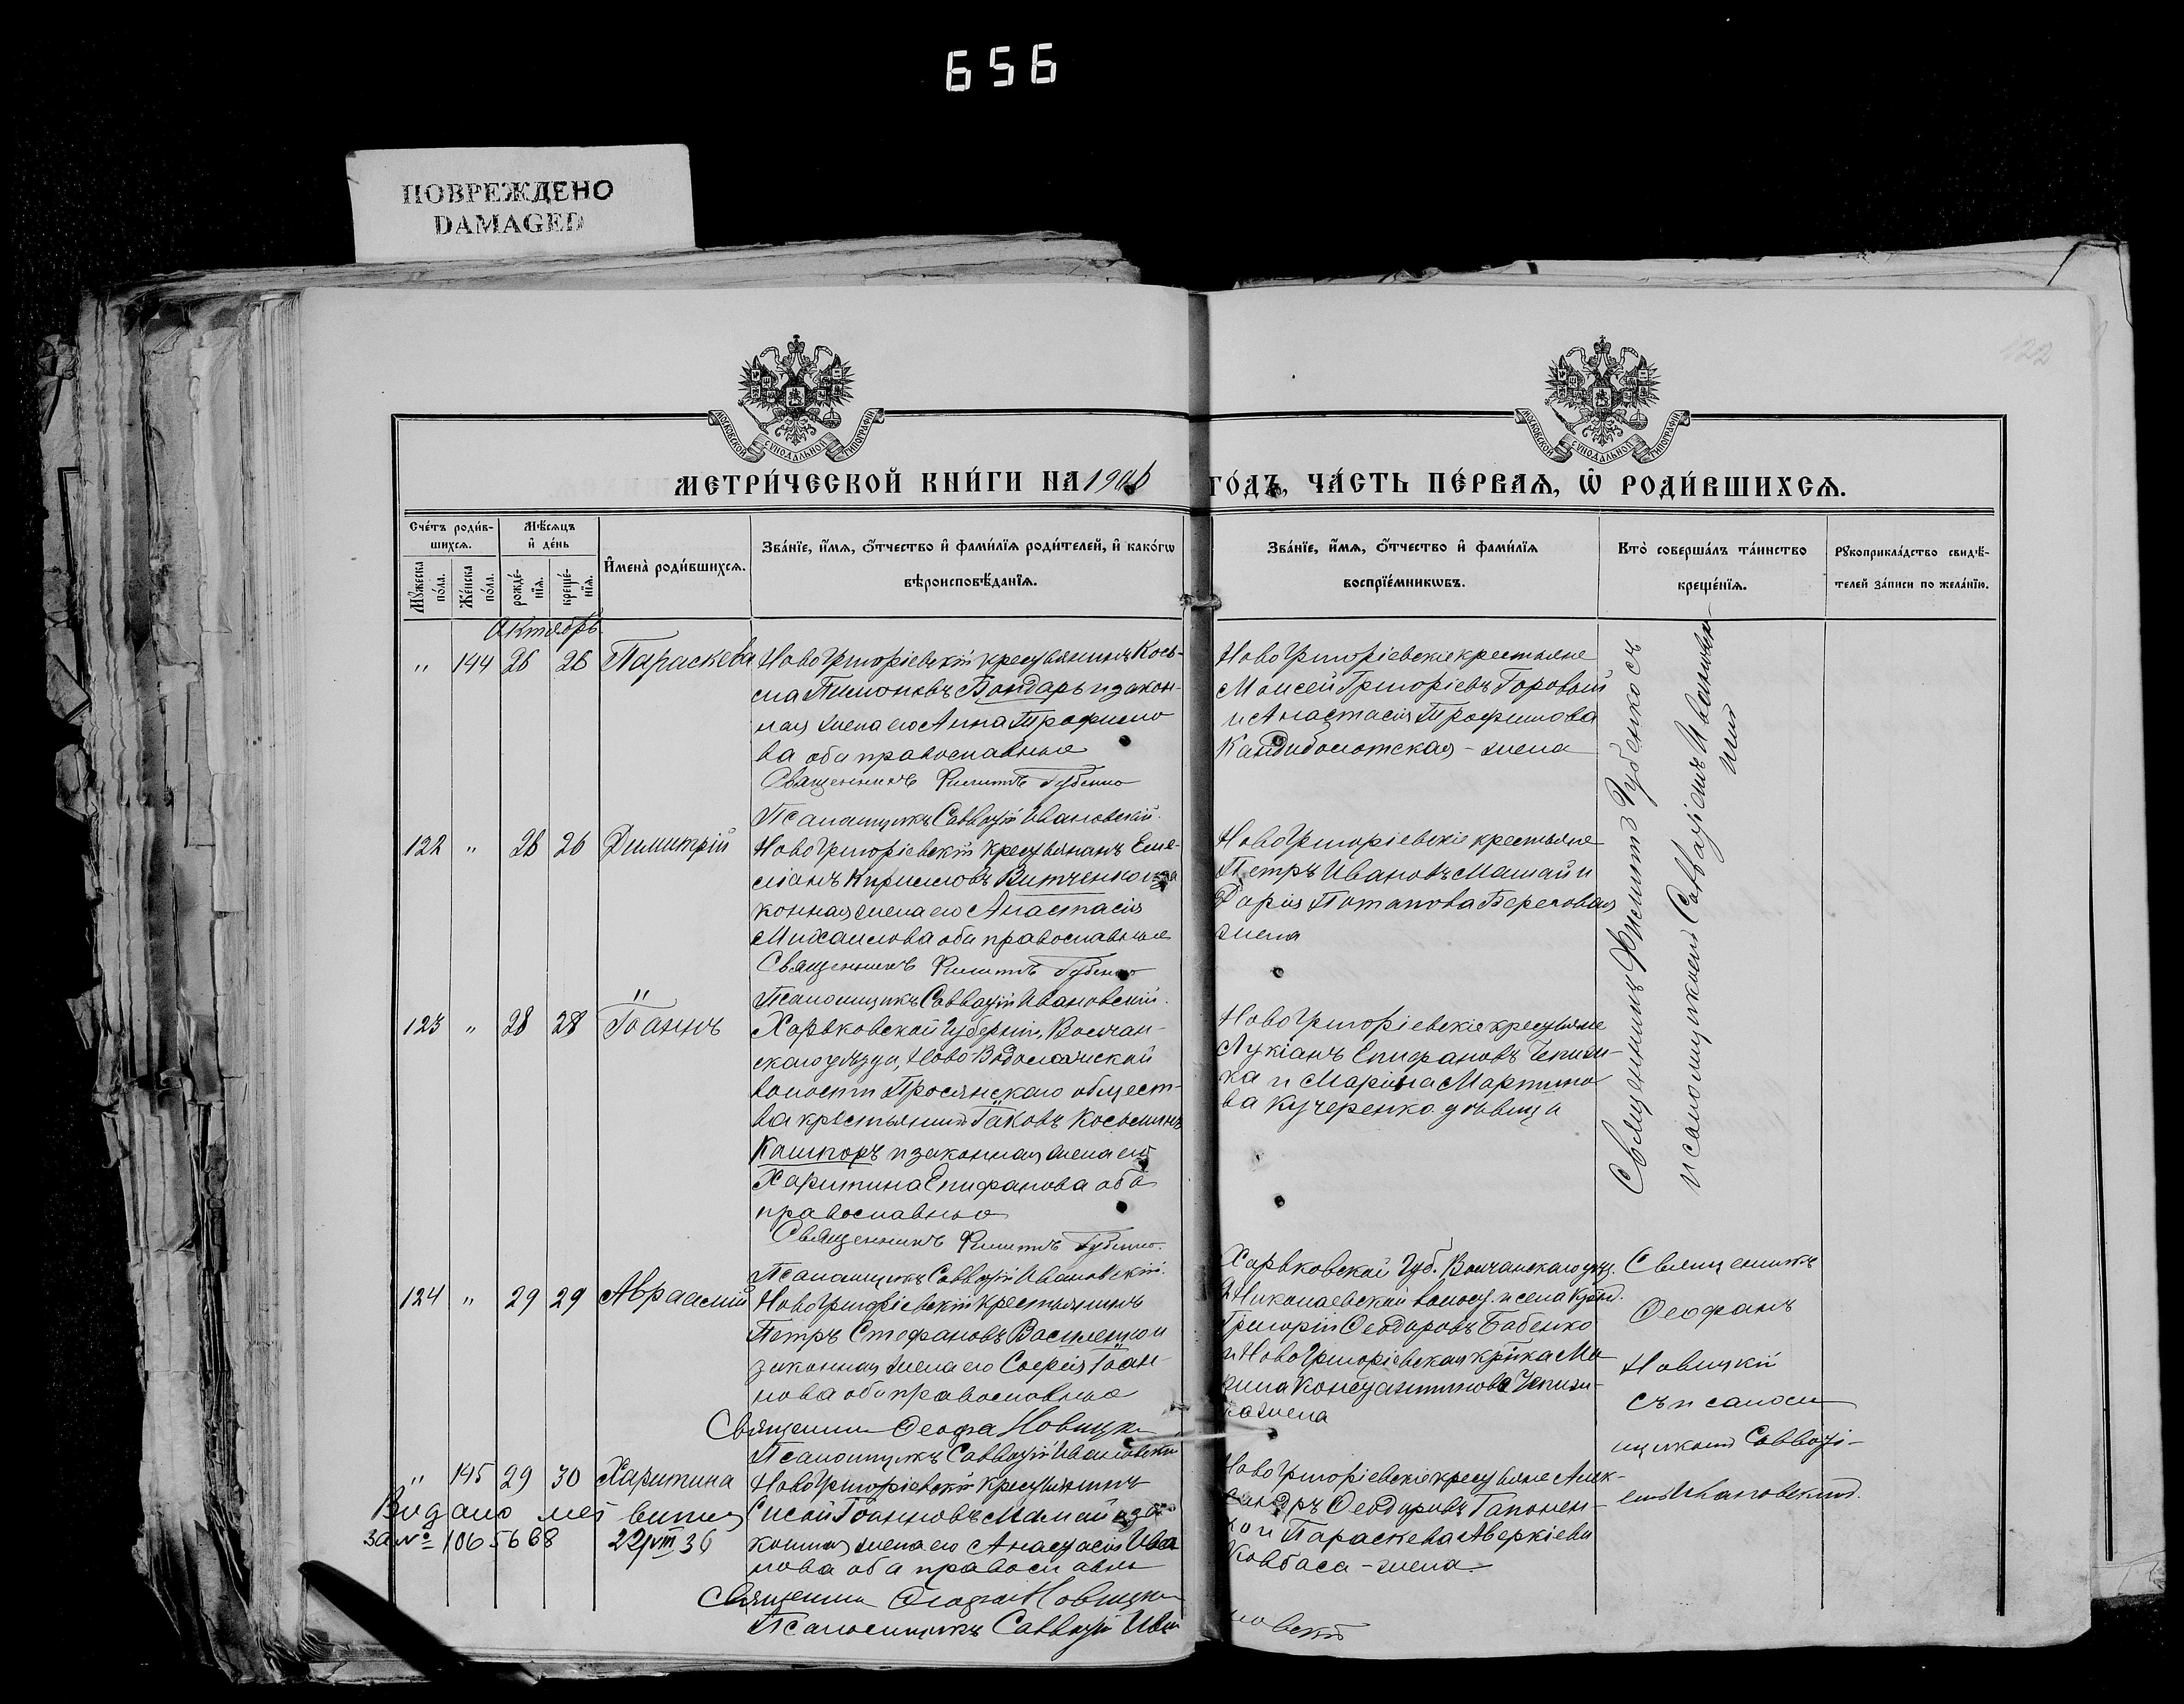 656
ПОВРЕЖДЕНО
DAMAGED
122
МОСКОВСКОЙ СУНОДАЛЬНОЙ ТИПОГРАФІИ
МОСКОВСКОЙ СУНОДАЛЬНОЙ ТИПОГРАФІИ
МЕТРИ́ЧЕСКОЙ КНИ́ГИ НА 1906 ГО́ДЪ, ЧА́СТЬ ПЕ́РВАЯ, Ѡ РОДИ́ВШИХСЯ.
Сче́тъ роди́в-
шихся.
Мѣ́сяцъ
и де́нь
Мꙋ́жеска по́ла.
Же́нска по́ла.
рожде́-нїя.
креще́-нїя.
И҆мена̀ роди́вшихся.
Зва́нїе, и҆́мя, ѻ҆́тчество и҆ фами́лїя роди́телей, и҆ како́гѡ
вѣроисповѣ́данїя.
Зва́нїе, и҆́мя, ѻ҆́тчество и҆ фами́лїя
воспрїе́мникѡвъ.
Кто̀ соверша́лъ та́инство
креще́нїя.
Рꙋкоприкла́дство свидѣ́-
телей за́писи по жела́нїю.
Октябрь
" 144 26 26 Параскева
НовоГригоріевскій крестьянинъ Кось-
ма Пимоновъ Бондарь и закон-
ная жена его Анна Трофимо
ва оба православные
Священникъ Филиппъ Губенко
Псаломщикъ Савватій Ивановскій.
НовоГригоріевскіе крестьяне
Моисей Григоріевъ Горовый
и Анастасія Трофимова
Кандиболотская - жена
Священникъ Филиппъ Губенко съ
псаломщикомъ Савватіемъ Ивановскимъ
122 " 26 26 Димитрій
НовоГригоріевскій крестьянинъ Еме-
ліанъ Кирилловъ Витченко и за
конная жена его Анастасія
Михаилова оба православные
Священникъ Филиппъ Губенко
Псаломщикъ Савватій Ивановскій.
НовоГригоріевскіе крестьяне
Петръ Ивановъ Мамай и
Дарія Потапова Береговая
жена
123 " 28 28 Іоаннъ
Харьковской губерніи, Волчан-
скаго уѣзда, Ново-Водолажской
волости Просянскаго общест-
ва крестьянинъ Іаковъ Косьминъ
Кашпоръ и законная жена его
Харитина Епифанова оба
православные
Священникъ Филиппъ Губенко.
Псаломщикъ Савватій Ивановскій.
НовоГригоріевскіе крестьяне
Лукіанъ Епифановъ Чепиж-
ка и Марина Мартино
ва Кучеренко дѣвица
124 " 29 29 Авраамій
НовоГригоріевскій крестьянинъ
Петръ Стефановъ Василенко и
законная жена его Софія Іоан-
нова оба православные
Священникъ Ѳеофанъ Новицкій
Псаломщикъ Савватій Ивановскій
Харьковской Губ. Волчанскаго уѣз.
Николаевской волос.
Григорій Ѳеодоровъ Бабенко
и НовоГригоріевская кр-ка Ма
Константинова Чепиж-
ка жена
Священникъ
Ѳеофанъ
Новицкій
съ псалом
щикомъ Савваті-
емъ Ивановскимъ.
" 145 29 30 Харитина
НовоГригоріевскій крестьянинъ
Сисой Іоанновъ Мамай и за
конная жена его Анастасія Ива
нова оба православны
Священникъ Ѳеофанъ Новицкій
Псаломщикъ Савватій Ивановскій
НовоГригоріевскіе крестьяне Алек-
сандръ Ѳеодоровъ Гапонен-
ко и Параскева Аверкіева
Ковбаса - жена.
Видано
за № 1065668 22/VIII 36